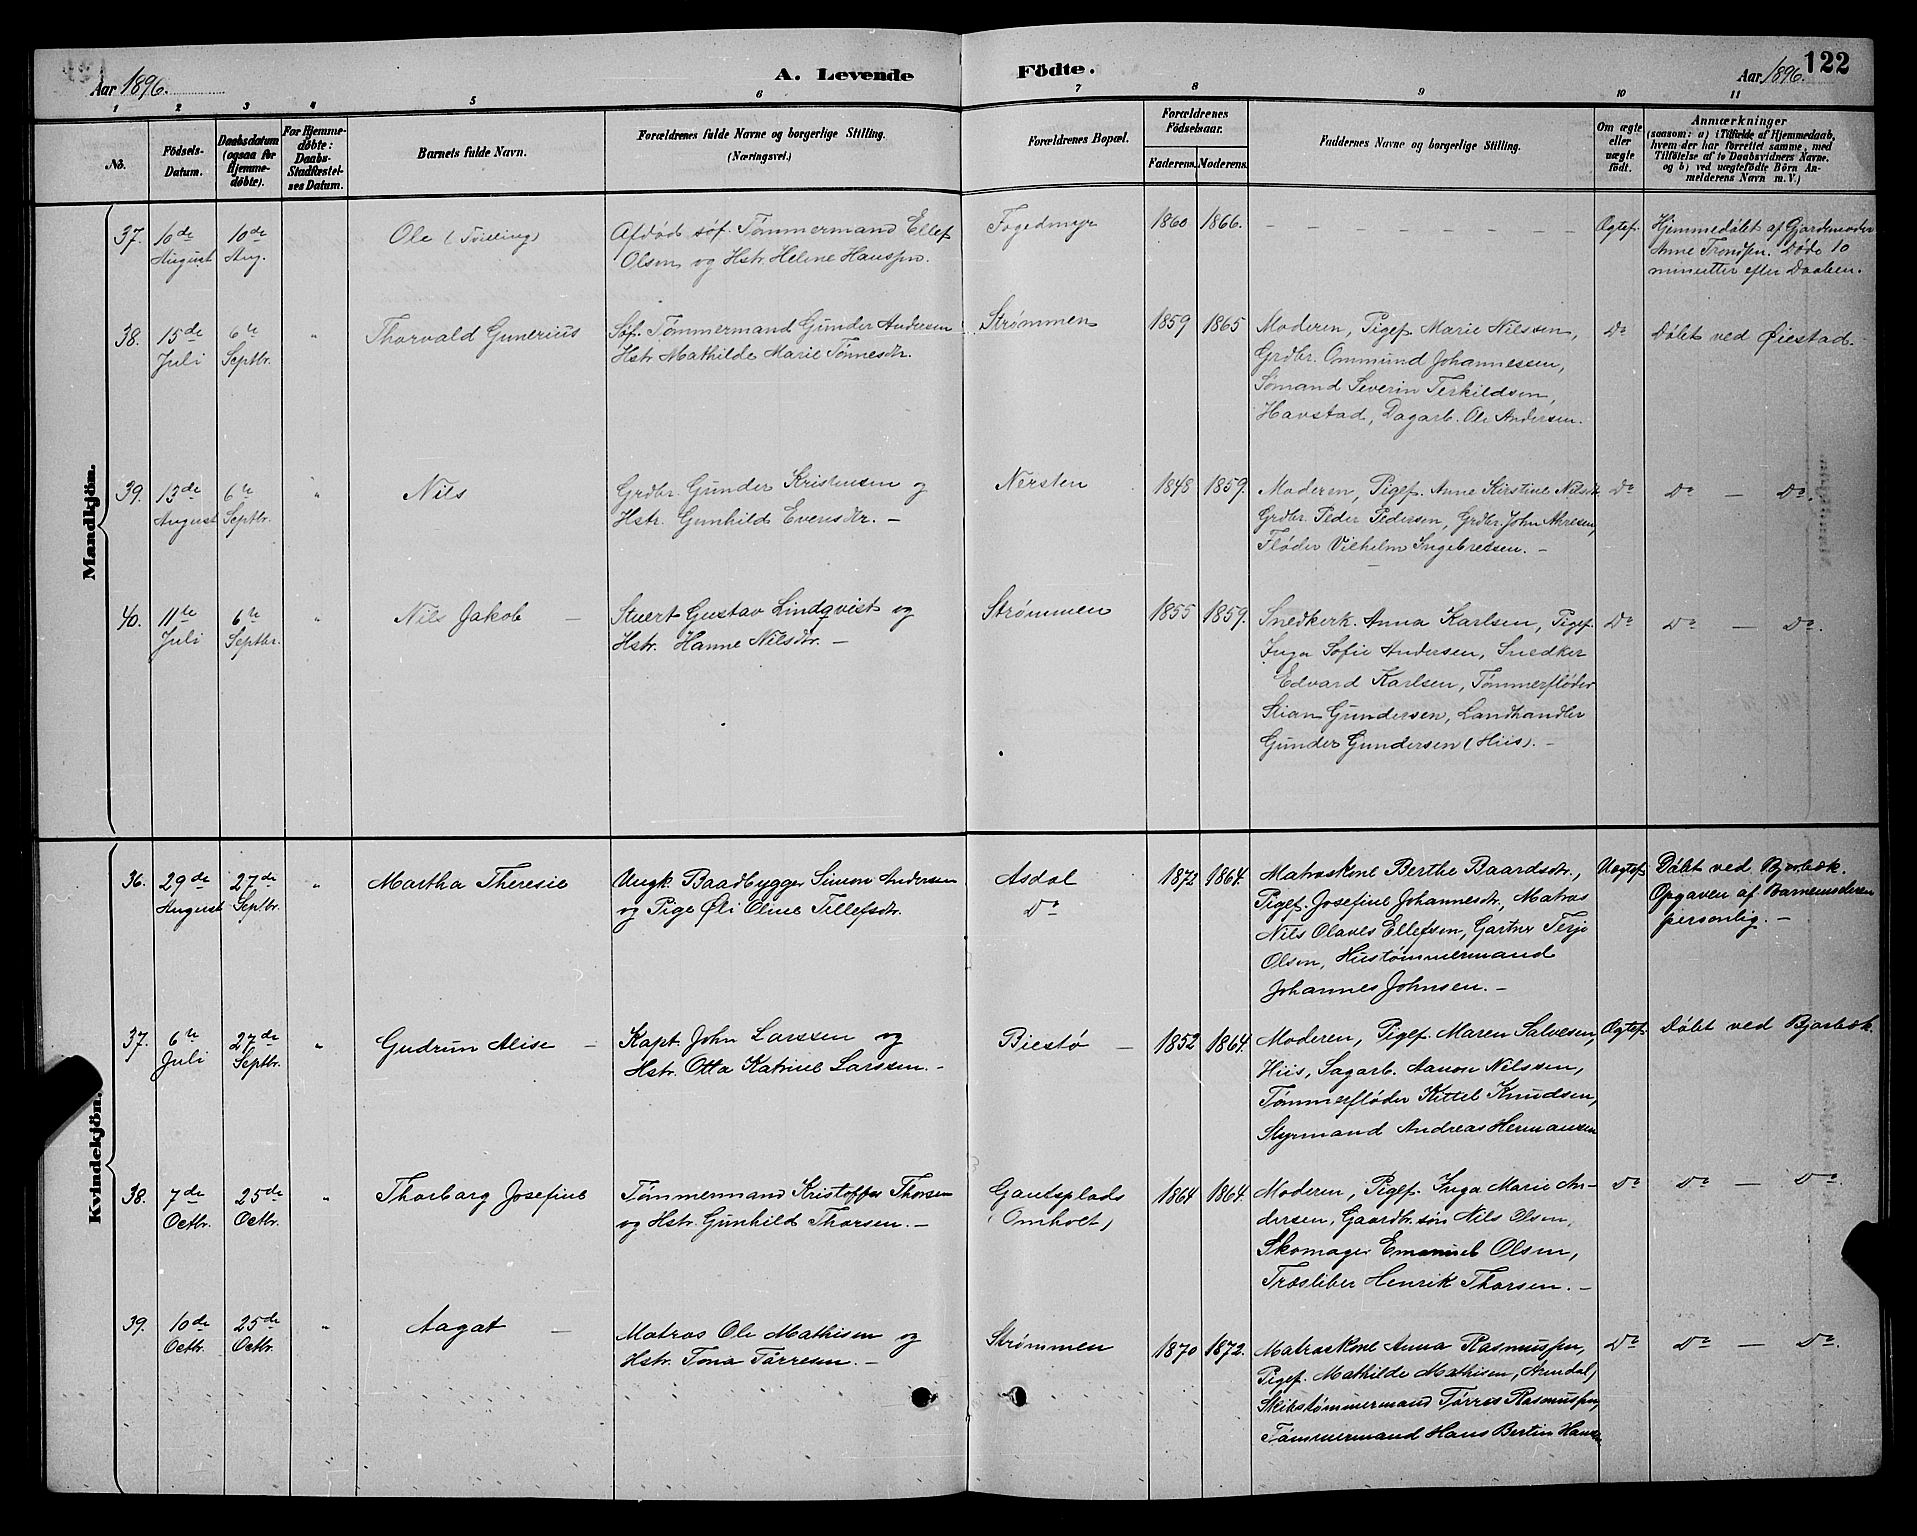 Aar 1896.
A. Levende Födte.
Aar 1896. 122
1 2 3 4 5 6 7 8 9 10 11
No.
Födsels-
Datum.
Daabsdatum
(ogsaa for
Hjemme-
døbte).
For Hjemme-
døbte:
Daabs-
Stadfæstel-
ses Datum.
Barnets fulde Navn.
Forældrenes fulde Navne og borgerlige Stilling.
(Næringsvei.)
Forældrenes Bopæl.
Forældrenes
Födselsaar.
Faderens. Moderens.
Faddernes Navne og borgerlige Stilling.
Om ægte
eller
uægte
født.
Anmærkninger
(saasom: a) i Tilfælde af Hjemmedaab,
hvem der har forrettet samme, med
Tilføielse af to Daabsvidners Navne.
og b) ved uægtefödte Börn An-
melderens Navn m. V.)
Mandkjön.
37. 10de
August
10de
Aug.
Ole (Tvilling)
Afdöd söf. Tømmermand Ellef
Olsen og Hstr. Helene Hanssen.
Fogedmyr
1860 1866.
Ogtef.
Hjemmedøbt af Gjordemoder
Anne Trondsen. Døde 10
minutter efter Daaben.
38. 15de
Juli
6te
Septbr.
"
Thorvald Gunerius
Søf. Tømmermand Gunder Andersen
Hstr. Mathilde Marie Tønnesdtr.
Strømmen
1859 1865
Moderen, Pigef. Marie Nilssen,
Grdbr. Ommund Johannessen,
Sømand Severin Terkildsen,
Havstad, Dagarb. Ole Andersen.
Do
Døbt ved Øiestad.
39. 13de
August
6te
Septbr.
"
Nils
Grdbr. Gunder Kristensen og
Hstr. Gunhild Eversdtr. -
Nersten
1848 1859.
Moderen, Pigef. Anne Kirstine Nilsdtr
Grdbr. Peder Pedersen, Grdbr. John Akresen,
Fløder Vilhelm Ingebretsen. -
Do
Do - Do.
40. 11te
Juli
6te
Septbr.
"
Nils Jakob -
Stuert Gustav Lindqvist og
Hstr. Hanne Nilsdtr. -
Strømmen
1855 1859.
Snedkerk. Anna Karlsen, Pigef.
Inga Sofie Andersen, Snedker
Edvard Karlsen, Tømmerfløder
Stian Gundersen, Landhandler
Gunder Gundersen (Hiis). -
Do
Do - Do.
Kvindekjön.
36. 29de
August
27de
Septbr.
"
Martha Theresie
Ungk. Baadbygger Simon Andersen
og Pige Øli Oline Tellefsdtr.
Asdal
Do
1872 1864.
Matroskone Berthe Baardsdtr.,
Pigef. Josefine Johannesdtr., Matros
Nils Olaves Ellefsen, Gartner Terje
Olsen, Hustømmermand
Johannes Johnsen. -
Uegtef.
Døbt ved Bjorbæk.
Opgaven af Barnemoderen
personlig. -
37. 6te
Juli
27de
Septbr.
"
Gudrun Alise -
Kapt. John Larssen og
Hstr. Otta Katrine Larssen. -
Biestø -
1852 1864.
Moderen, Pigef. Maren Salvesen,
Hiis, Sagarb. Aanon Nilssen,
Tømmerfløder Kittel Knudsen,
Styrmand Andreas Hermansen
Ogtef.
Døbt ved Bjorbæk.
38. 7de
Octbr.
25de
Octbr.
"
Thorborg Josefine
Tømmermand Kristoffer Thorsen
og Hstr. Gunhild Thorsen. -
Gautsplads
(Omholt)
1864 1864.
Moderen, Pigef. Inga Marie An-
dersen, Gaardbr.søn Nils Olsen,
Skomager Emanuel Olsen,
Træsliber Henrik Thorsen. -
Do
Do - Do.
39. 10de
Octbr.
25de
Octbr.
"
Aagot -
Matros Ole Mathisen og
Hstr. Tona Tørresen. -
Strømmen
1870 1872.
Matroskone Anna Rasmussen,
Pigef. Mathilde Mathisen, Arendal,
Skibstømmermand Tørres Rasmussen,
Tømmermand Hans Bertin Hansen
Do
Do - Do.